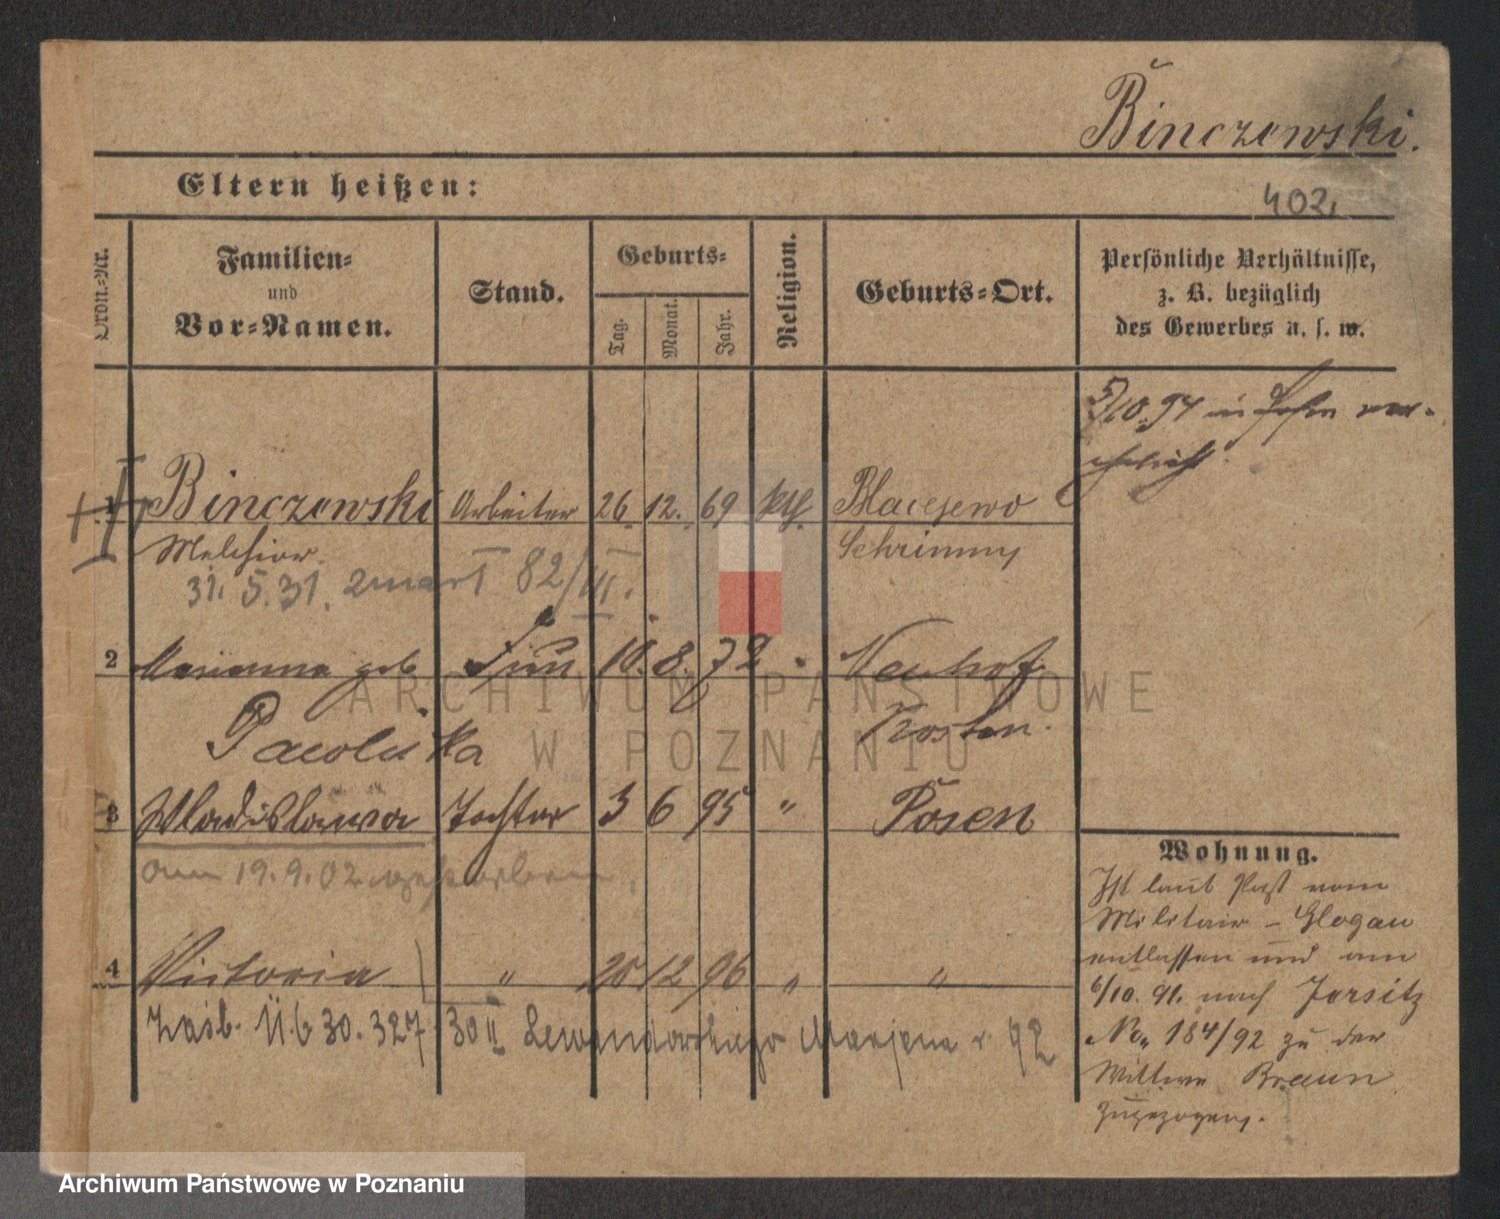 Binczewski.
Eltern heißen:
402,
Ordn.-Nr.
Familien-
und
Vor-Namen.
Stand.
Geburts-
Tag.
Monat.
Jahr.
Religion.
Geburts-Ort.
Persönliche Verhältnisse,
z. B. bezüglich
des Gewerbes u. s. w.
5/10.94 in Posen ver-
ehelicht.
1 Binczewski Arbeiter 26. 12. 69 kth. Blaceyewo
Melchior. Schrimm
31. 5. 31. zmarł 82/III.
2 Marianna geb. Frau 10. 8. 72 Neuhof
Kosten.
3 Wladislawa Tochter 3 6 95 " Posen
am 19. 9. 02 gestorben.
4 Victoria " 20 12 96 " "
30 II Lewandowskiego Marjana r. 92
Wohnung.
Ist laut Paß vom
Militair - Glogau
entlassen und am
6/10. 91. nach Jersitz
No. 184/92 zu der
Wittwe Braun
zugezogen.
ARCHIWUM PAŃSTWOWE
W POZNANIU
Archiwum Państwowe w Poznaniu